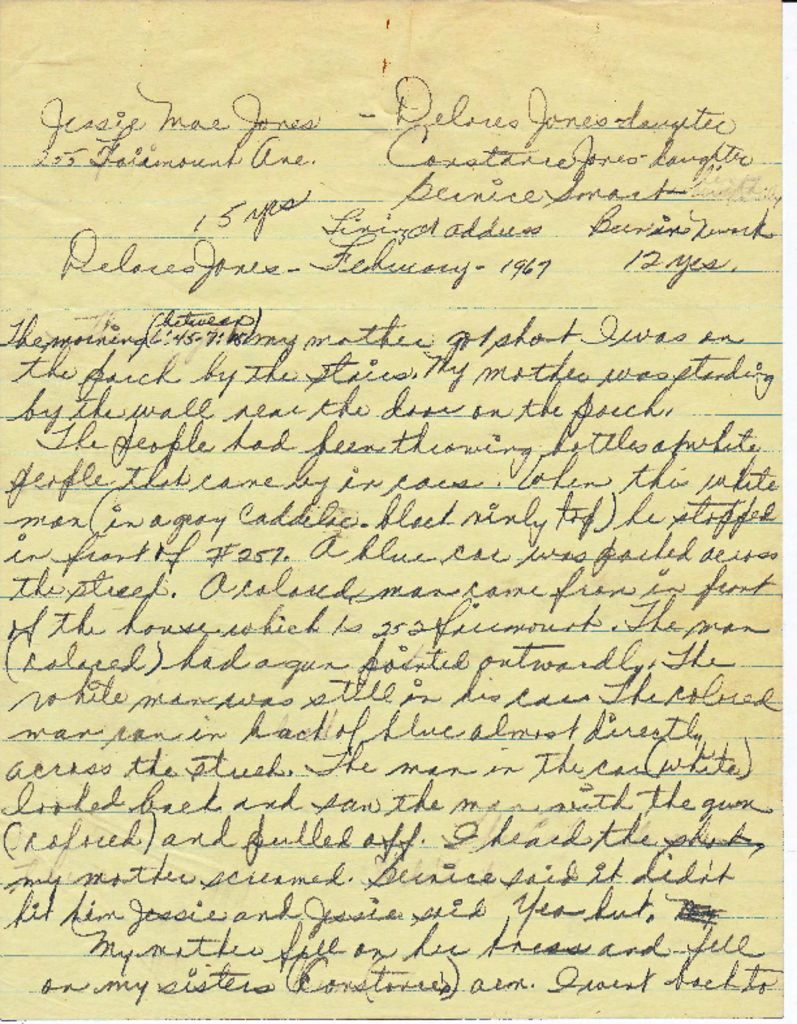 Jessie Mae Jones - Delores Jones-daughter
255 Fairmount Ave. Constance Jones-daughter
Bernice Smart
15 yrs Living at address Bernice Smart
Delores Jones - February - 1967 12 yrs.
The morning (between 6:45-7:15) my mother got shot I was on
the porch by the stairs. My mother was standing
by the wall near the door on the porch.
The people had been throwing bottles at white
people that came by in cars. When this white
man (in a gray Caddilic. black vinly top) he stopped
in front of #257. A blue car was parked across
the street. A colored man came from in front
of the house which is 252 fairmount. The man
(colored) had a gun pointed outwardly. The
white man was still in his car. The colored
man ran in back of blue almost directly
across the street. The man in the car (white)
looked back and saw the man with the gun
(colored) and pulled off. I heard the shot,
my mother screamed. Bernice said it didn't
hit him Jessie and Jessie said Yea but.
My mother fell on her knees and fell
on my sisters (Constance) arm. I went back to